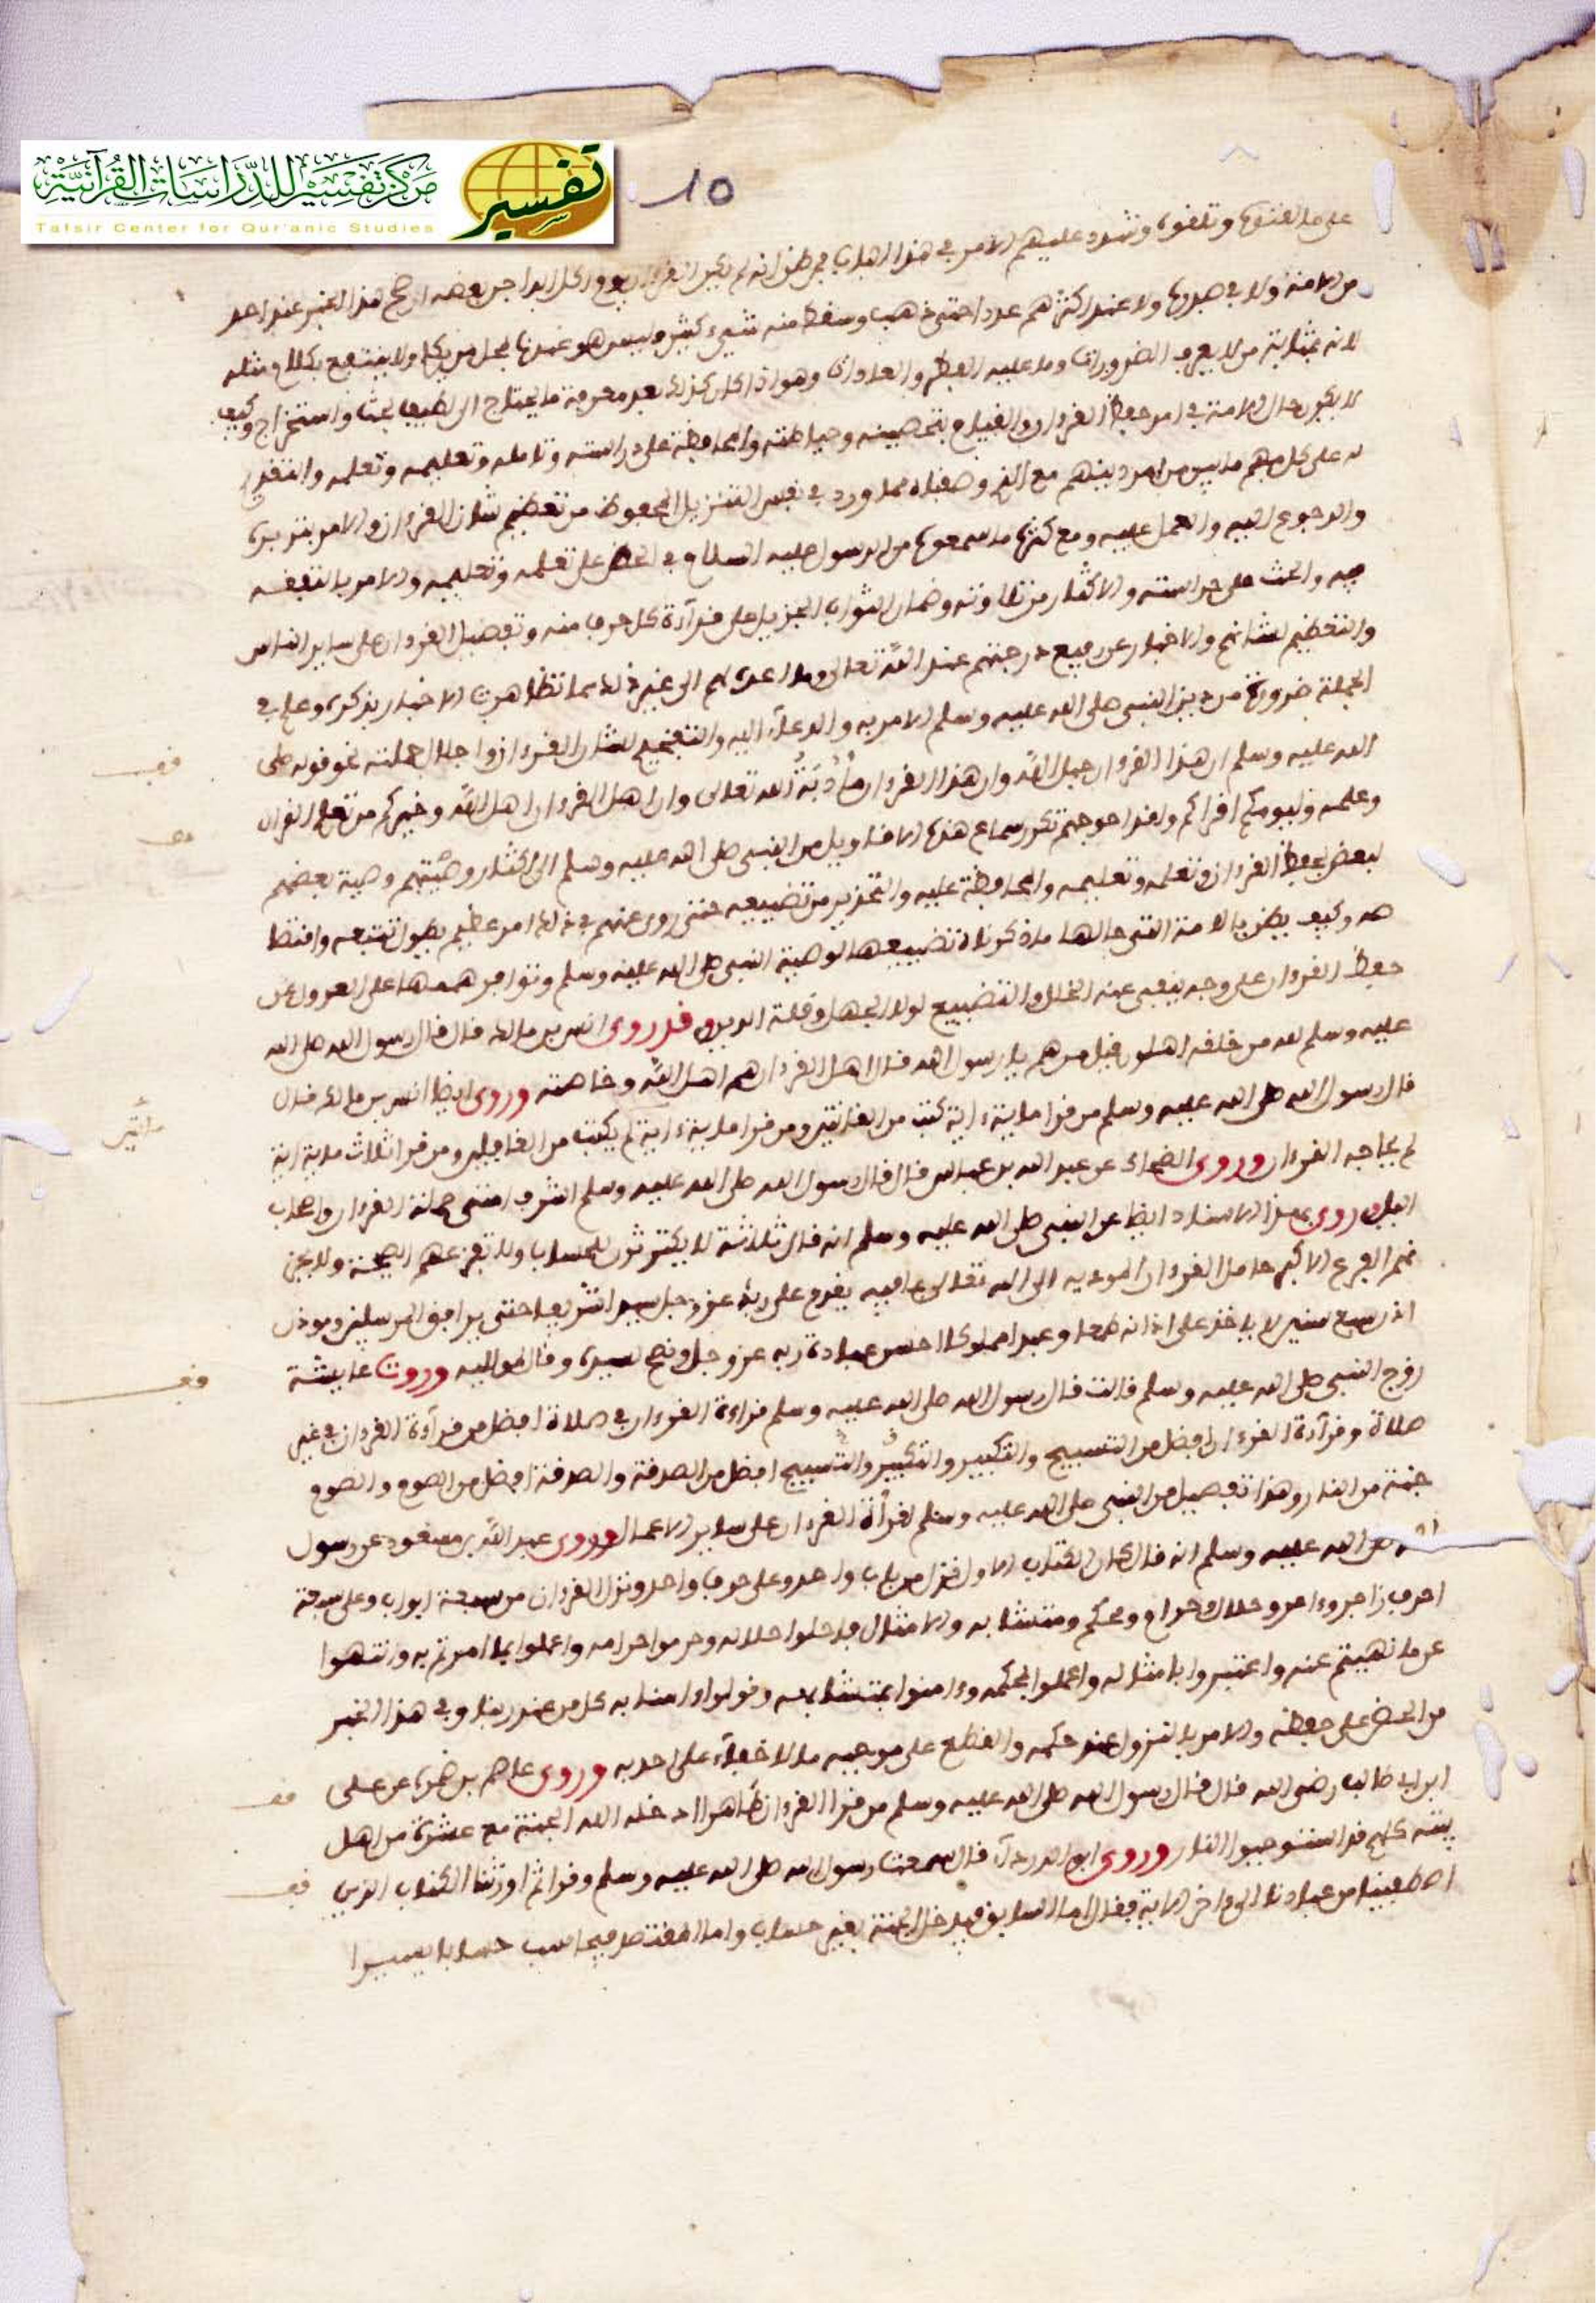 مركز تفسير للدراسات القرآنية
تفسير
Tafsir Center for Qur'anic Studies
15
من الامة ولا في صدرها ولا عند اكثرهم عددا حتى ذهب وسقط منه شيء كثير وليس هو عندنا بمحل من يكلم ولا ينتفع بكلام مثله
لانه بمثابة من لا يعرف الضرورات وما عليه الفطر والعادات وهو اذا كان كذلك بعد معرفة ما يحتاج الى لطيف بحث واستخراج وكيف
لا يكون حال الامة في امر حفظ القرءان والقيام بتحصينه وحياطته والمحافظة على دراسته وتامله وتعليمه وتعلمه
والرجوع اليه والعمل عليه ومع كثرة ما سمعوه من الرسول عليه السلام في الحض على تعلمه وتعليمه والامر بالتفقه
فيه والحث على دراسته والاكثار من تلاوته وضمان الثواب الجزيل على قراءة كل حرف منه وتفضيل القرءان على ساير الناس
والتعظيم لشانهم والاخبار عن رفيع درجتهم عند الله تعالى وما اعده لهم الى غير ذلك مما تظاهرت الاخبار بذكره وعلم في
الجملة ضرورة من دين النبي صلى الله عليه وسلم الامر به والدعاء اليه والتفخيم لشان القرءان واجلال حملته نحو قوله صلى
الله عليه وسلم ان هذا القرءان حبل الله وان هذا القرءان مأدبة الله تعالى وان اهل القرءان اهل الله وخيركم من تعلم القرءان
وعلمه وليؤمكم اقراكم ولقد احوجهم تكرر سماع هذه الاقاويل من النبي صلى الله عليه وسلم الى اكثار وصيتهم وصية بعضهم
لبعض بحفظ القرءان وتعلمه وتعليمه والمحافظة عليه والتحذير من تضييعه حتى روى عنهم في ذلك امر عظيم يطول تتبعه واقتصا
صه وكيف يظن بالامة التي حالها ما ذكرناه تضييعها لوصية النبي صلى الله عليه وسلم وتوافر هممها على العدول عن
حفظ القرءان على وجه ينفى عنه الخلل والتضييع لولا الجهل وقلة الدين وقد روى انس بن مالك قال قال رسول الله صلى الله
عليه وسلم لله من خلقه اهلون قيل من هم يا رسول الله قال اهل القرءان هم اهل الله وخاصته وروى ايضا انس بن مالك قال
قال رسول الله صلى الله عليه وسلم من قرا ماية ءاية كتب من القانتين ومن قرا مايتي ءاية لم يكتب من الغافلين ومن قرا ثلاث ماية اية
لم يحاجه القرءان وروى الضحاك عن عبد الله بن عباس قال قال رسول الله صلى الله عليه وسلم اشرف امتي حملة القرءان واصحاب
الليل وروى بهذا الاسناد ايضا عن النبي صلى الله عليه وسلم انه قال ثلاثة لا يكترثون للحساب ولا تفزعهم الصيحة ولا يحز
نهم الفزع الاكبر حامل القرءان المودية الى الله تعالى بما فيه يقدم على ربه عز وجل سيدا شريفا حتى يرافق المرسلين وموذن
اذن سبع سنين لا ياخذ على اذانه طمعا وعبد مملوك احسن عبادة ربه عز وجل ونصح لسيده وقال لمواليه وروت عايشة
زوج النبي صلى الله عليه وسلم قالت قال رسول الله صلى الله عليه وسلم قراءة القرءان في صلاة افضل من قراءة القرءان في غير
صلاة وقراءة القرءان افضل من التسبيح والتكبير والتكبير والتسبيح افضل من الصدقة والصدقة افضل من الصوم والصوم
جنة من النار وهذا تفضيل من النبي صلى الله عليه وسلم لقراءة القرءان على ساير الاعمال وروى عبد الله بن مسعود عن رسول
الله صلى الله عليه وسلم انه قال كان الكتاب الاول نزل من باب واحد وعلى حرف واحد ونزل القرءان من سبعة ابواب وعلى سبعة
احرف زاجر وءامر وحلال وحرام ومحكم ومتشابه والامثال فاحلوا حلاله وحرموا حرامه واعملوا بما امرتم به وانتهوا
عن ما نهيتم عنه واعتبروا بامثاله واعملوا بمحكمه وءامنوا بمتشابهه وقولوا ءامنا به كل من عند ربنا وفي هذا الخبر
من الحض على حفظه والامر بالنزول عند حكمه والقطع على موجبه ما لا خفاء على احد به وروى عاصم بن ضمرة عن علي
ابن ابي طالب رضي الله قال قال رسول الله صلى الله عليه وسلم من قرا القرءان ظاهرا ادخله الله الجنة مع عشرة من اهل
بيته كلهم قد استوجبوا النار وروى ابو الدرداء قال سمعت رسول الله صلى الله عليه وسلم وقرا ثم اورثنا الكتاب الذين
اصطفينا من عبادنا الى ءاخر الاية فقال اما السابق فيدخل الجنة بغير حساب واما المقتصد فيحاسب حسابا يسيرا